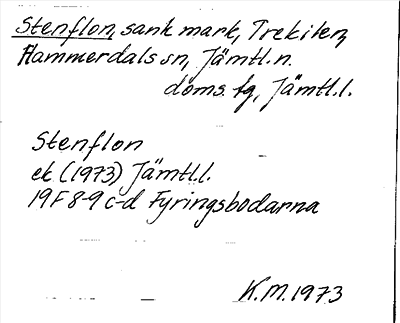 Stenflon, sank mark, Trekilen,
Hammerdals sn, Jämtl. n.
doms. fg, Jämtl.l.
Stenflon
ek (1973) Jämtl.l.
19F 8-9 c-d Fyringsbodarna
K.M. 1973